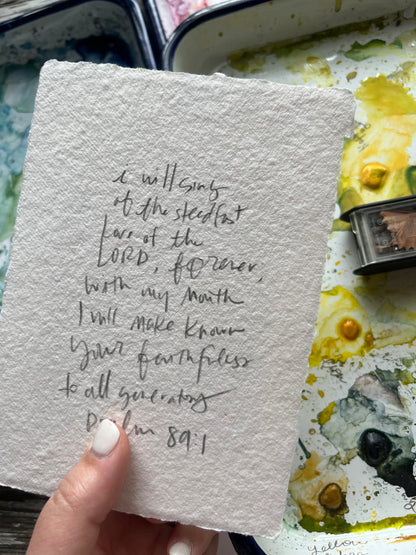 i will sing
of the steadfast
Love of the
LORD, forever,
with my mouth
I will make known
your faithfulness
to all generations
Psalm 89:1
yellow